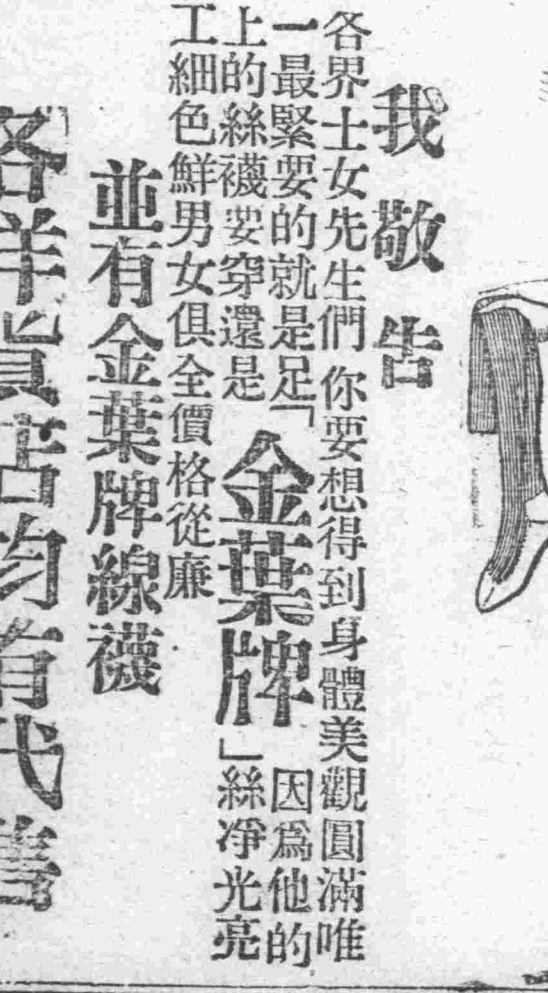 我敬告
各界士女先生們你要想得到身體美觀圓滿唯
一最緊要的就是足「金葉牌」因為他的
上的絲襪要穿還是絲淨光亮
工細色鮮男女俱全價格從廉
並有金葉牌線襪
各洋貨店均有代售